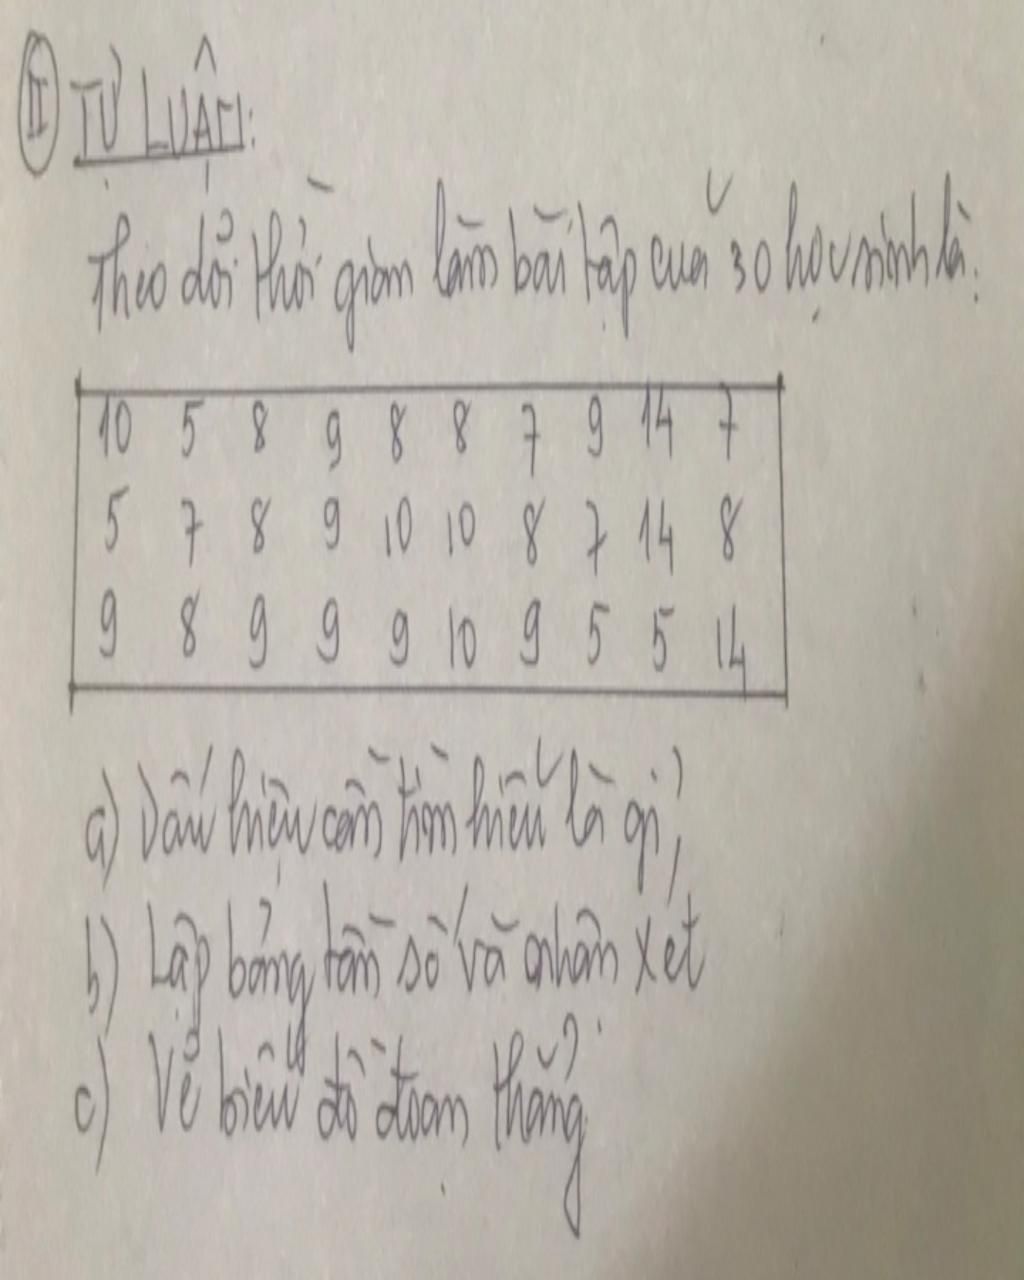 II TỰ LUẬN:
Theo dõi thời gian làm bài tập của 30 học sinh là:
10 5 8 9 8 8 7 9 14 7
5 7 8 9 10 10 8 7 14 8
9 8 9 9 9 10 9 5 5 14
a) Dấu hiệu cần tìm hiểu là gì?
b) Lập bảng tần số và nhận xét
c) Vẽ biểu đồ đoạn thẳng